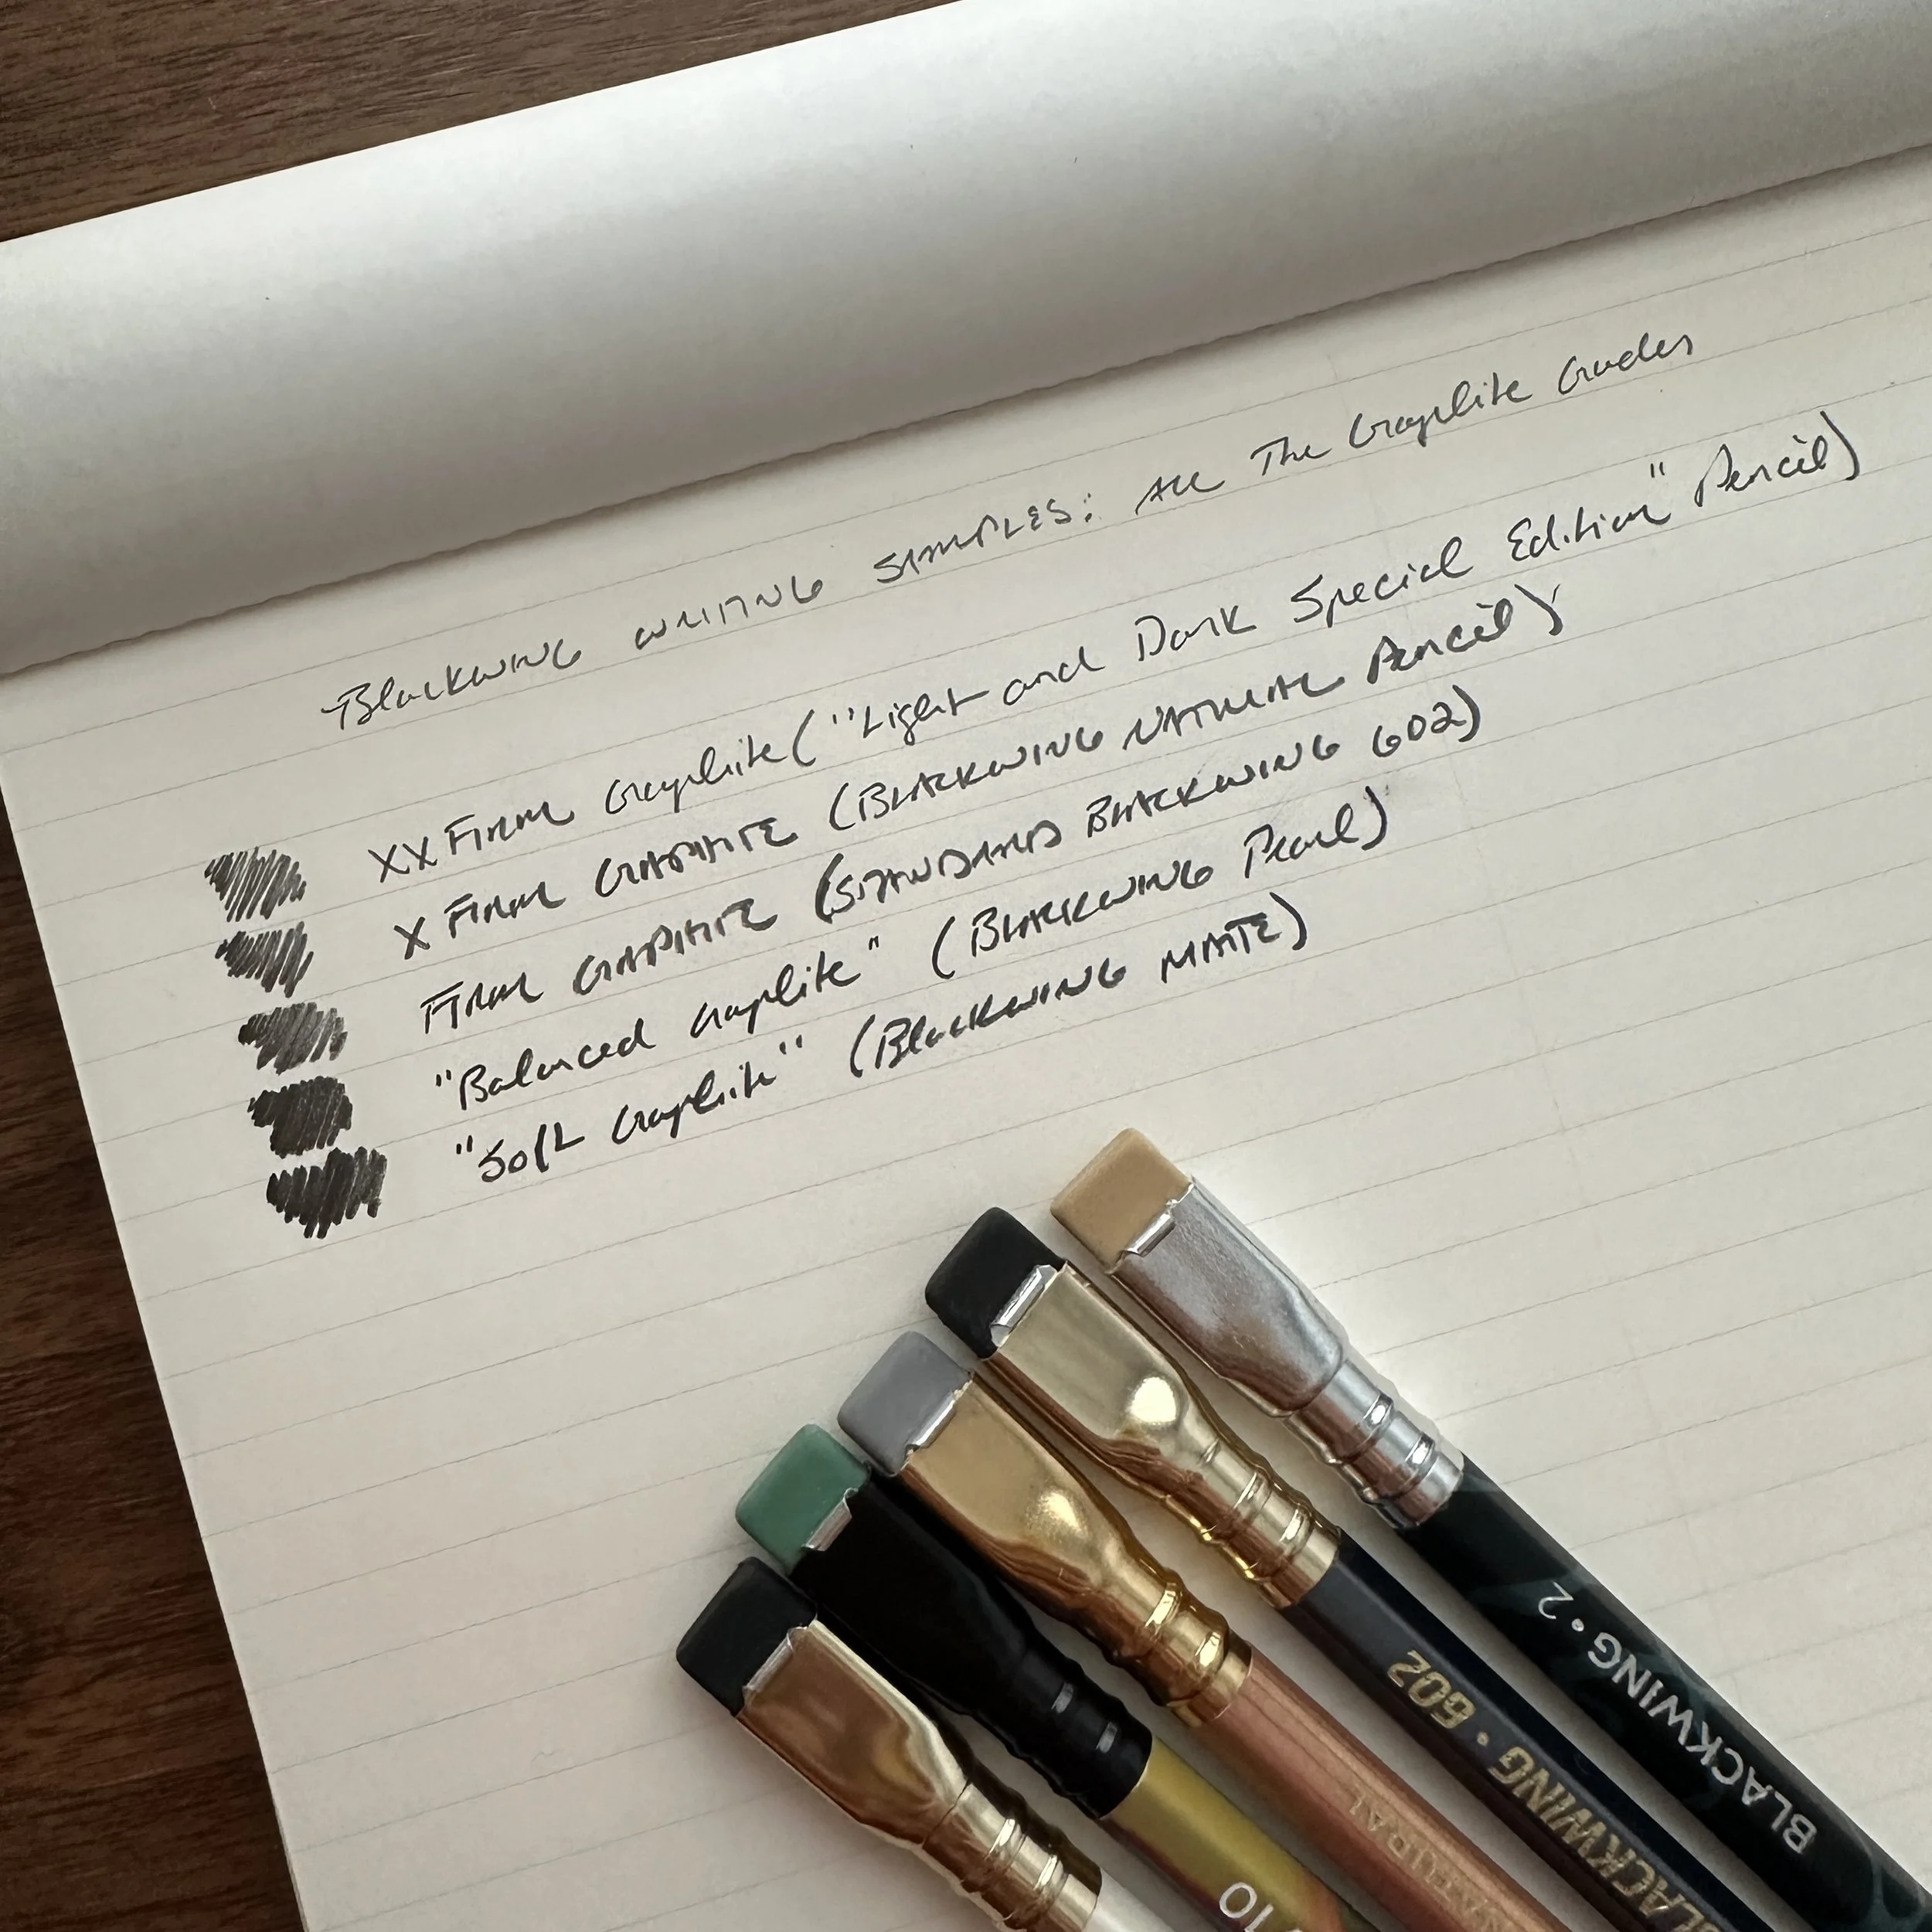 Blackwing Writing Samples: All The Graphite Grades
XX Firm Graphite ("Light and Dark Special Edition" Pencil)
X Firm Graphite (Blackwing Natural Pencil)
Firm Graphite (Standard Blackwing 602)
"Balanced Graphite" (Blackwing Pearl)
"Soft Graphite" (Blackwing Matte)
BLACKWING • 2
BLACKWING • 602
NATURAL
10